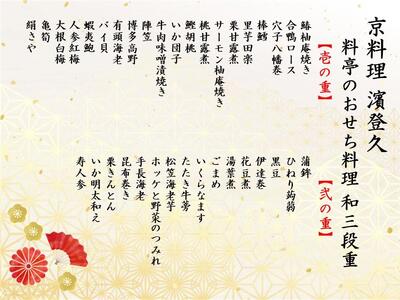 京料理 濱登久
料亭のおせち料理 和三段重
【壱の重】
鰆柚庵焼き
合鴨ロース
穴子八幡巻
棒鱈
里芋田楽
栗甘露煮
サーモン柚庵焼き
桃甘露煮
鰹胡桃
いか団子
牛肉味噌漬焼き
陣笠
博多高野
有頭海老
バイ貝
蝦夷鮑
人参紅梅
大根白梅
亀筍
絹さや
【弐の重】
蒲鉾
ひねり蒟蒻
黒豆
伊達巻
花豆煮
湯葉煮
ごまめ
いくらなます
たたき牛蒡
松笠海老芋
ホッケと野菜のつみれ
手長海老
昆布巻き
栗きんとん
いか明太和え
寿人参